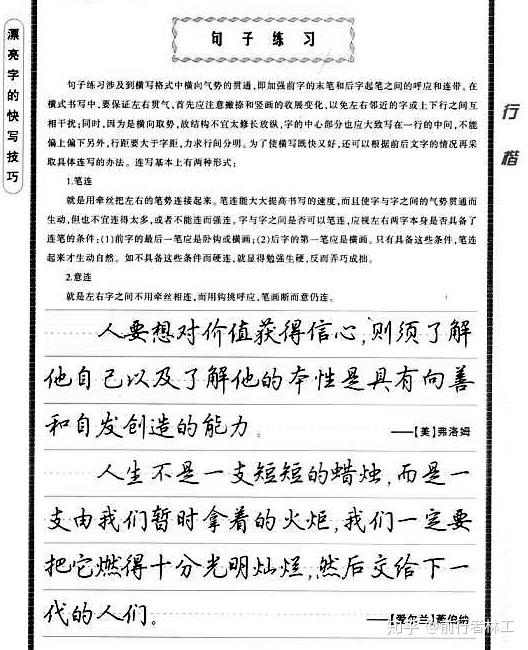 漂亮字的快写技巧
句子练习
行楷
句子练习涉及到横写格式中横向气势的贯通,即加强前字的末笔和后字起笔之间的呼应和连带。在
横式书写中,要保证左右贯气,首先应注意撇捺和竖画的收展变化,以免左右邻近的字或上下行之间互
相干扰;同时,因为是横向取势,故结构不宜太修长放纵,字的中心部分也应大致写在一行的中间,不能
偏上偏下另外,行距要大于字距,力求行间分明。为了使横写既快又好,还可以根据前后文字的情况再采
取具体连写的办法。连写基本上有两种形式:
1.笔连
就是用牵丝把左右的笔势连接起来。笔连能大大提高书写的速度,而且使字与字之间的气势贯通而
生动,但也不宜连得太多,或者不能连而强连。字与字之间是否可以笔连,应视左右两字本身是否具备了
连笔的条件:(1)前字的最后一笔应是卧钩或横画;(2)后字的第一笔应是横画。只有具备这些条件,笔连
起来才生动自然。如不具备这些条件而硬连,就显得勉强生硬,反而弄巧成拙。
2.意连
就是左右字之间不用牵丝相连,而用钩挑呼应,笔画断而意仍连。
人要想对价值获得信心,则须了解
他自己以及了解他的本性是具有向善
和自发创造的能力。
——【美】弗洛姆
人生不是一支短短的蜡烛,而是一
支由我们暂时拿着的火炬,我们一定要
把它燃得十分光明灿烂,然后交给下一
代的人们。
——【爱尔兰】萧伯纳
知乎 @前行者林工